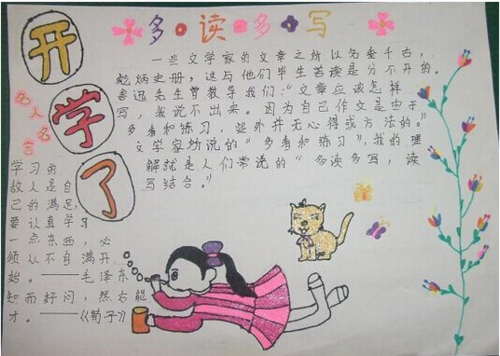 开学了
多读多写
一些文学家的文章之所以名垂千古，
彪炳史册，这与他们毕生苦读是分不开的。
鲁迅先生曾教导我们：“文章应该怎样
写，我说不出来。因为自己作文是由于
多看和练习，此外并无心得或方法的。”
文学家们说的“多看和练习”，我的理
解就是人们常说的“多读多写，读
写结合。”
名人名言
学习的
敌人是自
己的满足，
要认真学习
一点东西，必
须从不自满开
始。——毛泽东
知而好问，然后能
才。——《荀子》